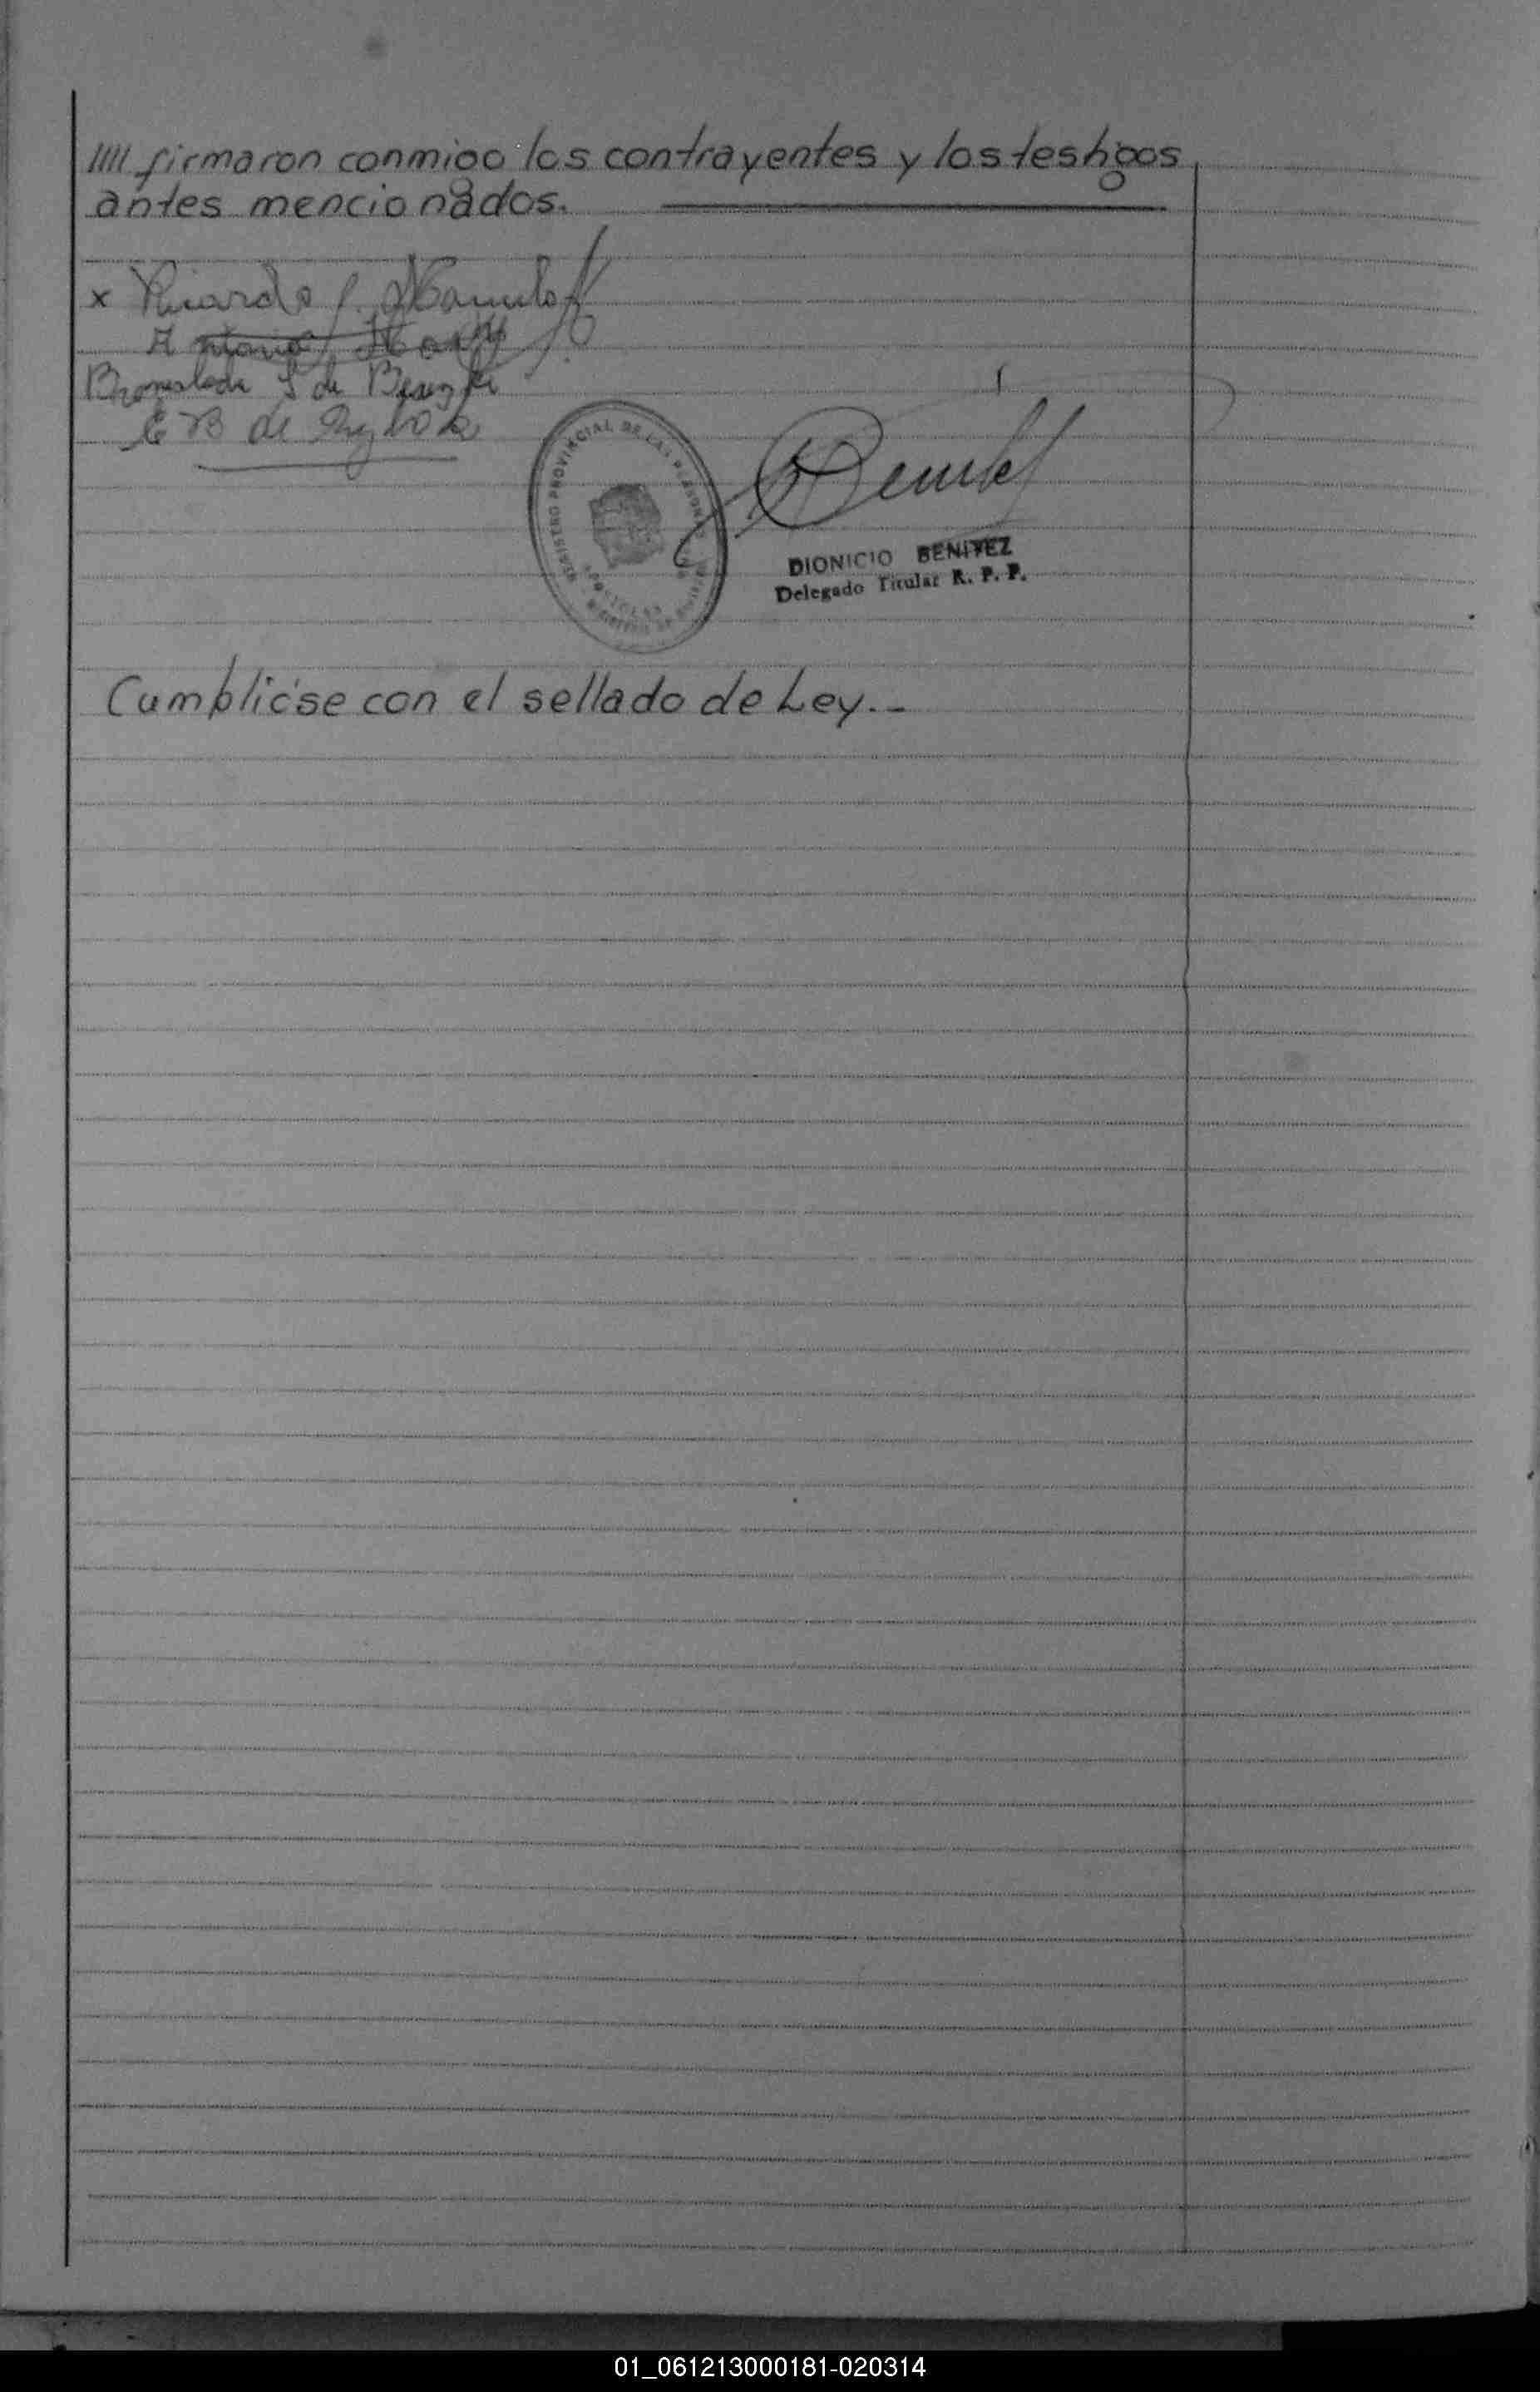 //// firmaron conmigo los contrayentes y los testigos
antes mencionados.
x Ricardo
Antonio
S de
E B de
REGISTRO PROVINCIAL DE LAS PERSONAS
APOSTOLES
DIONICIO BENITEZ
Delegado Titular R. P. P.
Cumplióse con el sellado de Ley.-
01_061213000181-020314